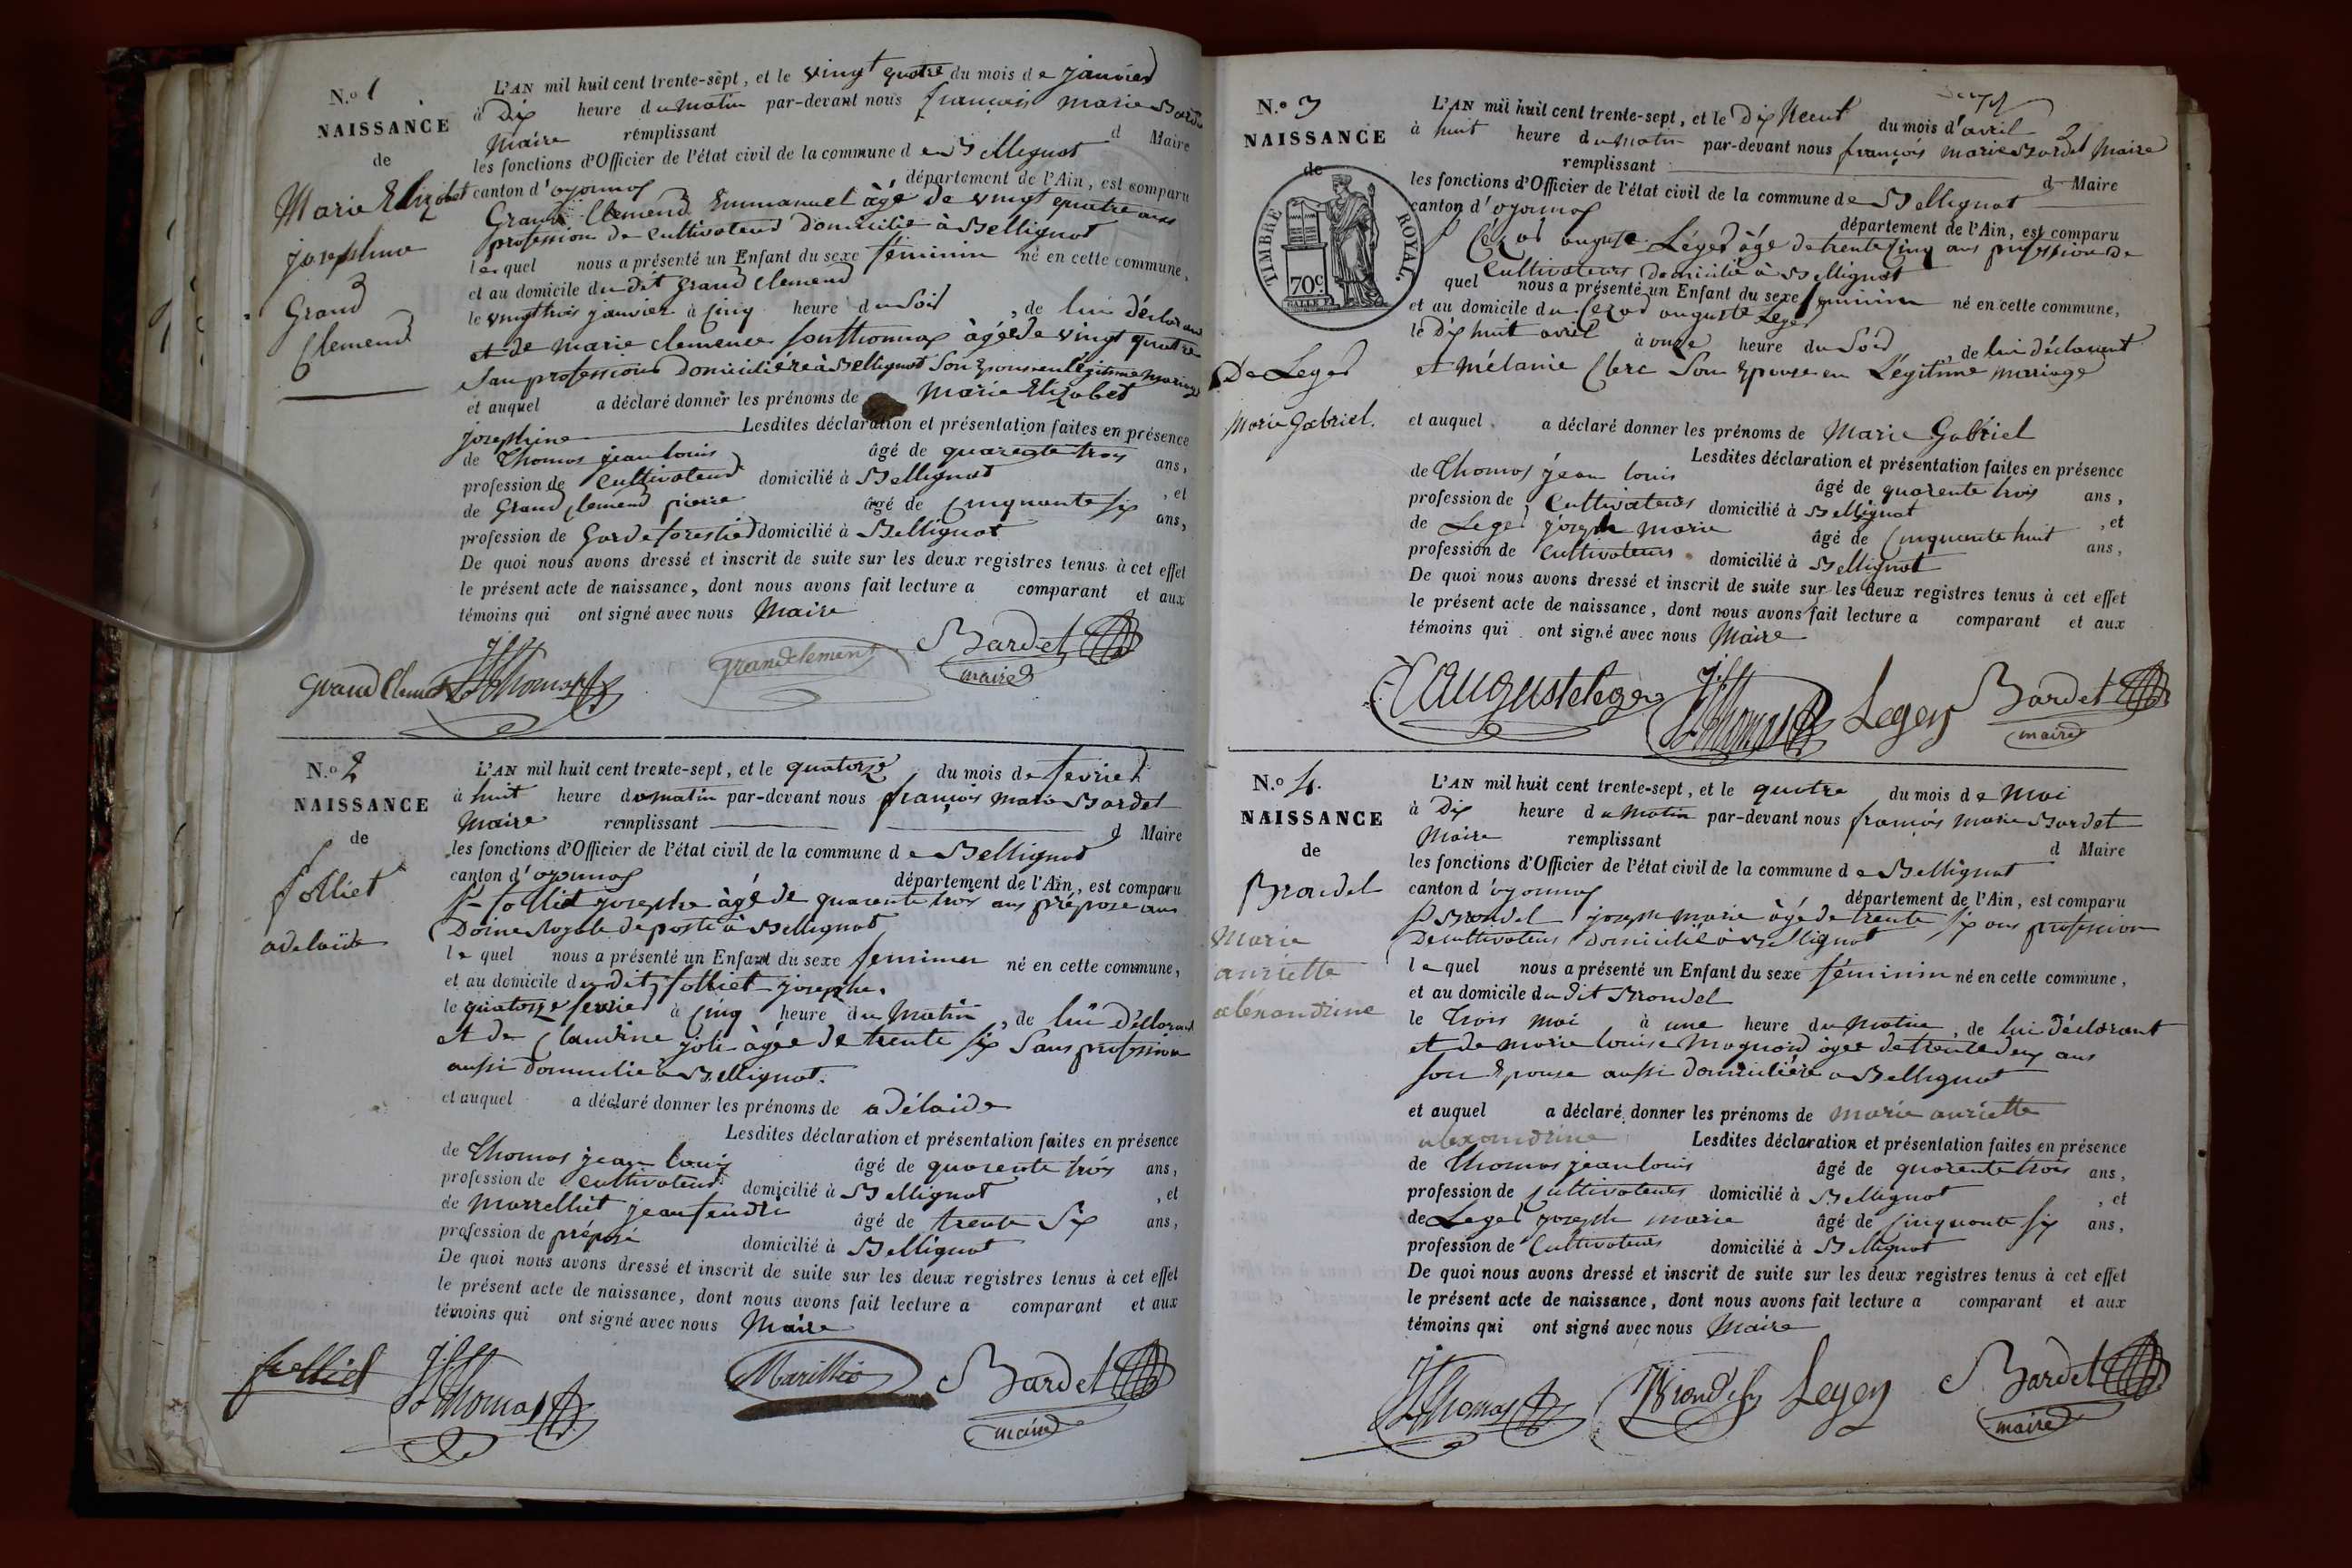 N.o 1
NAISSANCE
de
Marie Elizabet
josephine
Grand
Clemend
L'AN mil huit cent trente-sept, et le vingt quatre du mois de janvier
à Dix heure du matin par-devant nous françois marie Bardet
Maire remplissant d Maire
les fonctions d'Officier de l'état civil de la commune de Bellignat
canton d'oyonnax département de l'Ain, est comparu
Grand Clemend Emmanuel àgé de vingt quatre ans
profession de Cultivateur domicilié à Bellignat
lequel nous a présenté un Enfant du sexe féminin né en cette commune,
et au domicile du dit Grand Clemend
le vingt trois janvier à cinq heure du Soir, de lui déclarant
et de marie clemence Sonthonnax àgée de vingt quatre
Sans profession domiciliére à Bellignat Son Epouse en légitime mariage
et auquel a déclaré donner les prénoms de Marie Elizabet
josephine Lesdites déclaration et présentation faites en présence
de Thomas jean louis âgé de quarente trois ans,
profession de Cultivateur domicilié à Bellignat, et
de Grand Clemend pierre âgé de Cinquante six ans,
profession de Garde forestier domicilié à Bellignat
De quoi nous avons dressé et inscrit de suite sur les deux registres tenus à cet effet
le présent acte de naissance, dont nous avons fait lecture a comparant et aux
témoins qui ont signé avec nous Maire
Grand Clement JLThomas grandclement Bardet
maire
N.o 2
NAISSANCE
de
folliet
adelaïde
L'AN mil huit cent trente-sept, et le quatorze du mois de fevrier
à huit heure du matin par-devant nous françois marie Bardet
Maire remplissant d Maire
les fonctions d'Officier de l'état civil de la commune de Bellignat
canton d'oyonnax département de l'Ain, est comparu
folliet josephe àgé de quarente trois ans préposé aux
Doine Royale de poste à Bellignat
lequel nous a présenté un Enfant du sexe feminin né en cette commune,
et au domicile du dit folliet josephe.
le quatorze fevrier à cinq heure du Matin, de lui déclarant
et de Claudine joli àgée de trente six Sans profession
aussi domicilié à Bellignat.
et auquel a déclaré donner les prénoms de adélaide
Lesdites déclaration et présentation faites en présence
de Thomas jean louis âgé de quarente trois ans,
profession de Cultivateur domicilié à Bellignat, et
de jean âgé de trente Six ans,
profession de préposé domicilié à Bellignat
De quoi nous avons dressé et inscrit de suite sur les deux registres tenus à cet effet
le présent acte de naissance, dont nous avons fait lecture a comparant et aux
témoins qui ont signé avec nous Maire
folliet JLThomas Bardet
maire
N.o 3
NAISSANCE
de
TIMBRE ROYAL.
70c
De Leger
Marie Gabriel.
L'AN mil huit cent trente-sept, et le Dix Neuf du mois d'avril
à huit heure du matin par-devant nous françois marie Bardet Maire
remplissant d Maire
les fonctions d'Officier de l'état civil de la commune de Bellignat
canton d'oyonnax département de l'Ain, est comparu
Cézar auguste Léger àgé de trente cinq ans profession de
Cultivateur domicilié à Bellignat
quel nous a présenté un Enfant du sexe feminin né en cette commune,
et au domicile du Cezar auguste Leger
le Dix huit avril à onze heure du Soir, de lui déclarant
et Mélanie Clerc Son Epouse en Légitime mariage
et auquel a déclaré donner les prénoms de Marie Gabriel
Lesdites déclaration et présentation faites en présence
de Thomas jean louis âgé de quarente trois ans,
profession de Cultivateur domicilié à Bellignat, et
de Leger joseph marie âgé de Cinquente huit ans,
profession de Cultivateur domicilié à Bellignat
De quoi nous avons dressé et inscrit de suite sur les deux registres tenus à cet effet
le présent acte de naissance, dont nous avons fait lecture a comparant et aux
témoins qui ont signé avec nous Maire
Cauguste leger JLThomas Leger Bardet
maire
N.o 4.
NAISSANCE
de
Brondel
Marie
anriette
alexandrine
L'AN mil huit cent trente-sept, et le quatre du mois de Mai
à Dix heure du Matin par-devant nous françois marie Bardet
Maire remplissant d Maire
les fonctions d'Officier de l'état civil de la commune de Bellignat
canton d'oyonnax département de l'Ain, est comparu
Brondel joseph marie àgé de trente six ans profession
De cultivateur domicilié à Bellignat
lequel nous a présenté un Enfant du sexe féminin né en cette commune,
et au domicile du dit Brondel
le Trois mai à une heure du Matin, de lui déclarant
et de marie louise àgée de trente deux ans
son Epouse aussi domiciliére a Bellignat
et auquel a déclaré donner les prénoms de marie anriette
alexandrine Lesdites déclaration et présentation faites en présence
de Thomas jean louis âgé de quarente trois ans,
profession de Cultivateur domicilié à Bellignat, et
de Leger joseph marie âgé de cinquante six ans,
profession de Cultivateur domicilié à Bellignat
De quoi nous avons dressé et inscrit de suite sur les deux registres tenus à cet effet
le présent acte de naissance, dont nous avons fait lecture a comparant et aux
témoins qui ont signé avec nous Maire
JLThomas Leger Bardet
maire